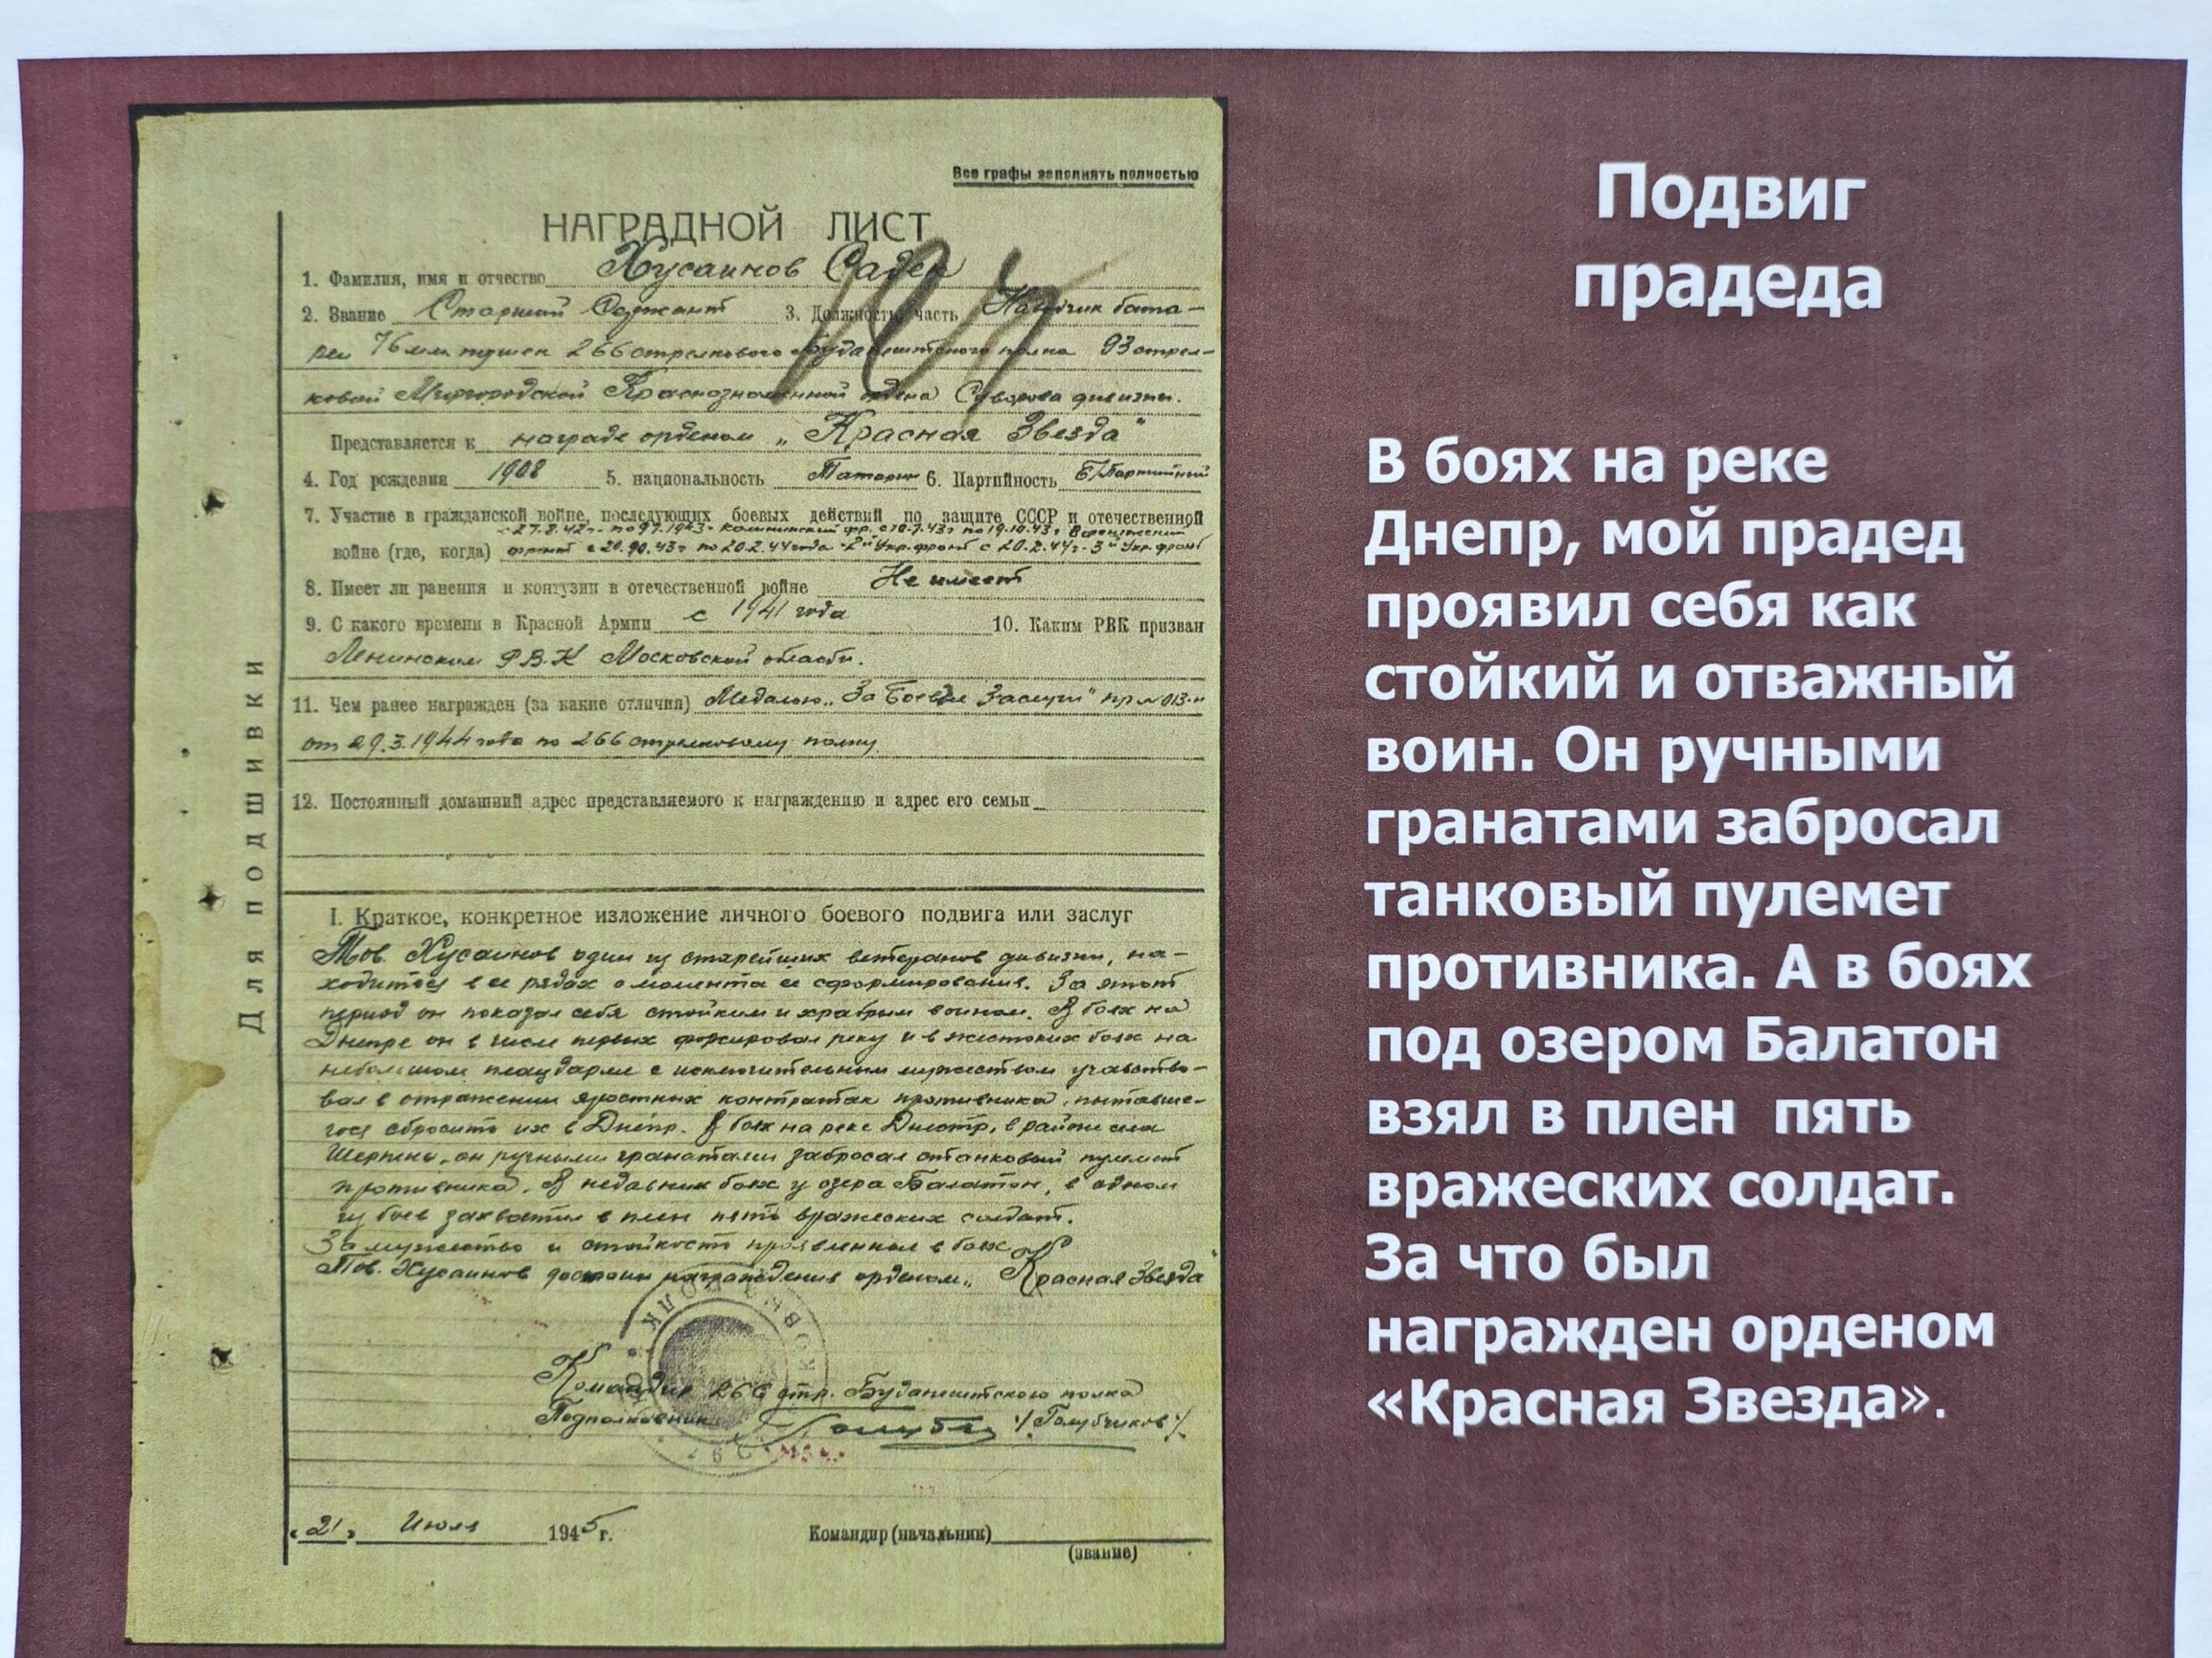 Все графы заполнять полностью
НАГРАДНОЙ ЛИСТ
1. Фамилия, имя и отчество Хусаинов Садек
2. Звание Старший Сержант 3. Должность, часть Наводчик бата-
реи 76 мм пушек 266 стрелкового Будапештского полка 93 стрел-
ковой Миргородской Краснознаменной ордена Суворова дивизии.
Представляется к награде орденом „Красная Звезда"
4. Год рождения 1908 5. национальность Татарин 6. Партийность Б/Партийный
7. Участие в гражданской войне, последующих боевых действий по защите СССР и отечественной
с 27.8.42г. по 9.7.1943г Калининский фр. с 10.7.43г по 19.10.43г Воронежский
войне (где, когда) фронт с 20.10.43г по 20.2.44 года 2й Укр. фронт с 20.2.44г. 3й Укр. фронт
8. Имеет ли ранения и контузии в отечественной войне Не имеет
9. С какого времени в Красной Армии с 1941 года 10. Каким РВК призван
Ленинским Р.В.К Московской области.
11. Чем ранее награжден (за какие отличия) Медалью „За Боевые Заслуги" пр № 013-н
от 29.3.1944 года по 266 стрелковому полку.
12. Постоянный домашний адрес представляемого к награждению и адрес его семьи
Для подшивки
I. Краткое, конкретное изложение личного боевого подвига или заслуг
Тов. Хусаинов один из старейших ветеранов дивизии, на-
ходится в ее рядах с момента ее сформирования. За этот
период он показал себя стойким и храбрым воином. В боях на
Днепре он в числе первых форсировал реку и в жестоких боях на
небольшом плацдарме с исключительным мужеством участво-
вал в отражении яростных контратак противника, пытавше-
гося сбросить их в Днепр. В боях на реке Днестр, в районе села
Шерпены, он ручными гранатами забросал станковый пулемет
противника. В недавних боях у озера Балатон, в одном
из боев захватил в плен пять вражеских солдат.
За мужество и стойкость проявленные в боях
Тов. Хусаинов достоин награждения орденом „Красная Звезда"
Командир 266 стр. Будапештского полка
Подполковник /Голубчиков/
«21» Июля 1945 г. Командир (начальник)
(звание)
Подвиг
прадеда
В боях на реке
Днепр, мой прадед
проявил себя как
стойкий и отважный
воин. Он ручными
гранатами забросал
танковый пулемет
противника. А в боях
под озером Балатон
взял в плен пять
вражеских солдат.
За что был
награжден орденом
«Красная Звезда».